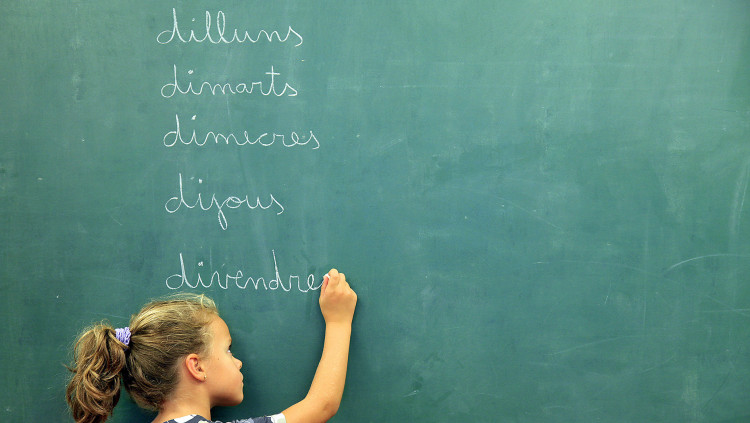 dilluns
dimarts
dimecres
dijous
divendre